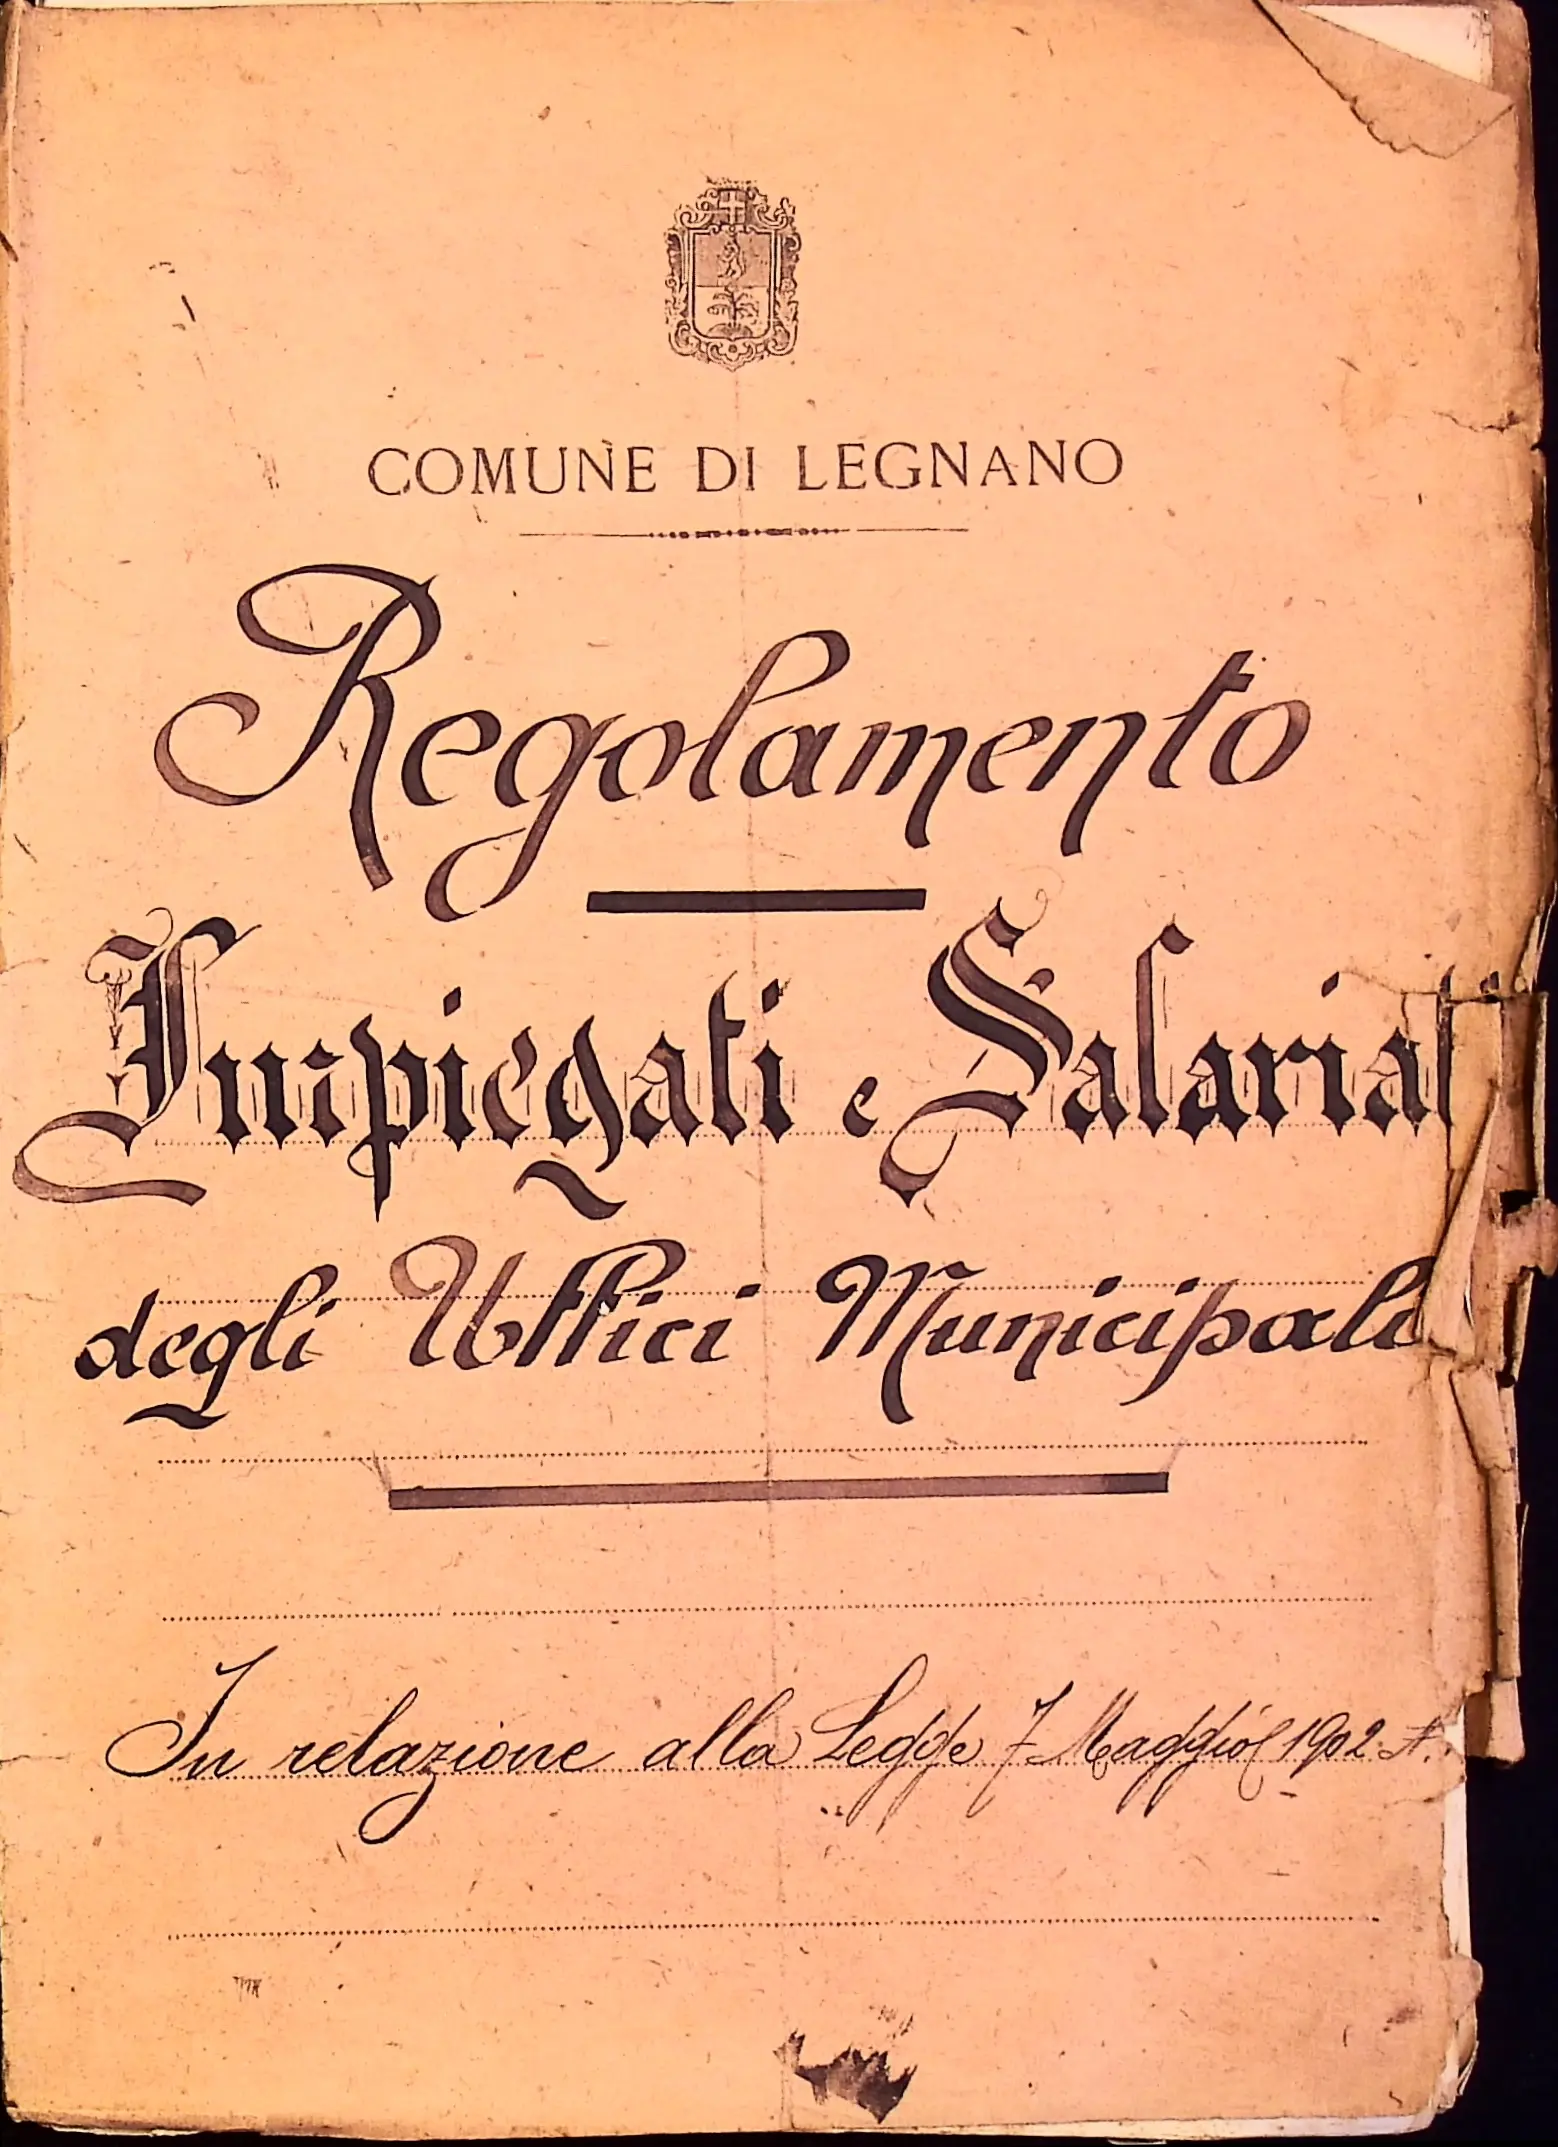 COMUNE DI LEGNANO
Regolamento
Impiegati e Salariati
degli Uffici Municipali
In relazione alla Legge 7 Maggio 1902